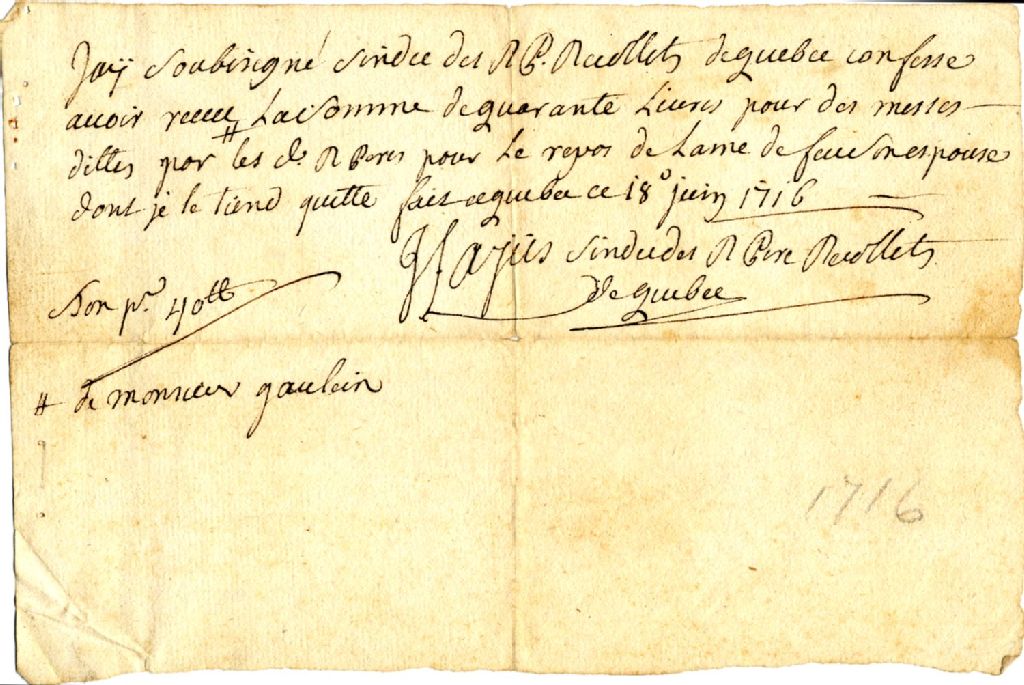 Jaÿ Soubsigné sindec des R P. Recollets de quebec confesse
avoir receu # La somme de quarante Livres pour des messes
dittes par les ds R Peres pour Le repos de Lame de feue son espouse
dont je le tiend quitte fait a quebec ce 18e juin 1716
sindec des R Pere Recollets
De quebec
bon pr 40tt
# de monsieur gaulein
1716